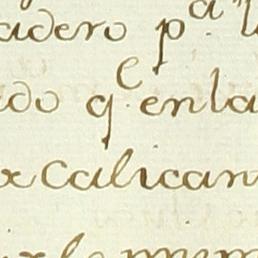 adero pª l
ado qᵉ enla
x Calican